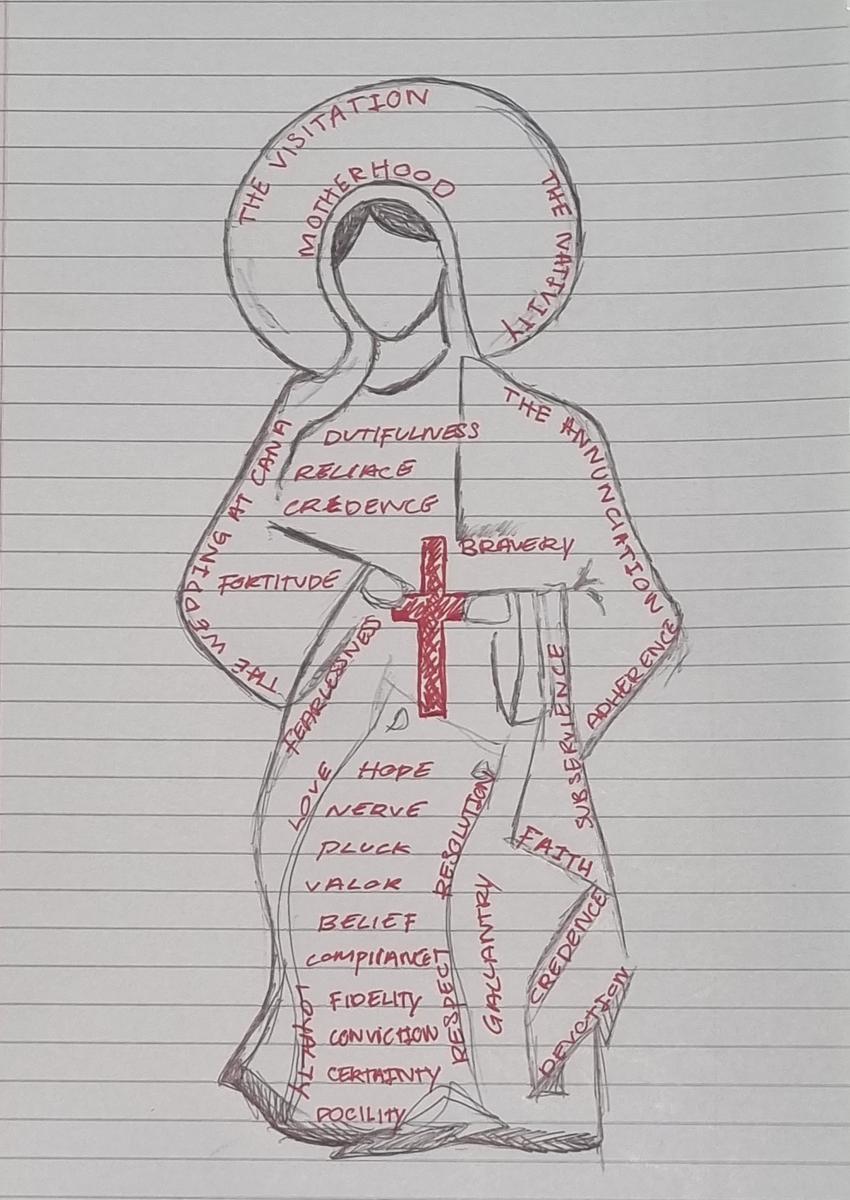 THE VISITATION
MOTHERHOOD
THE NATIVITY
THE ANNUNCIATION
DUTIFULNESS
RELIACE
CREDENCE
THE WEDDING AT CANA
BRAVERY
FORTITUDE
FEARLESSNESS
ADHERENCE
SUBSERVIENCE
LOVE
HOPE
NERVE
RESOLUTION
PLUCK
FAITH
VALOR
GALLANTRY
BELIEF
CREDENCE
COMPIIANCE
RESPECT
DEVOTION
FIDELITY
LOYALTY
CONVICTION
CERTAINTY
DOCILITY